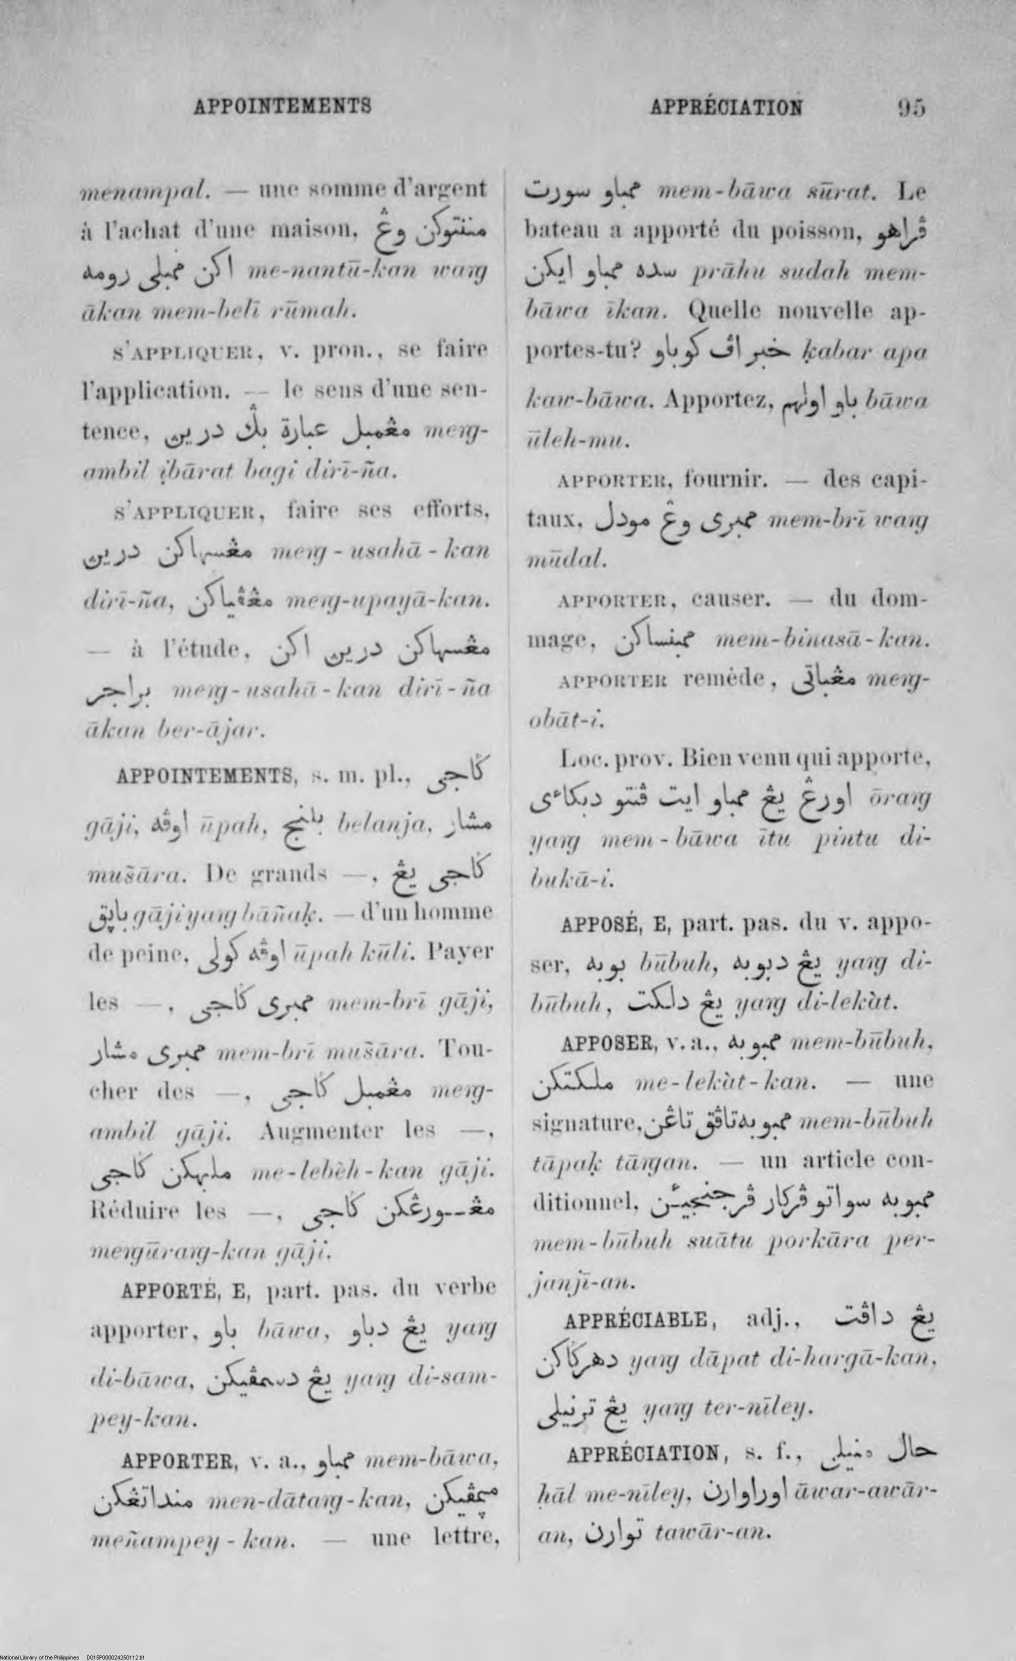 APPOINTEMENTS
APPRÉCIATION 95
menampal. — une somme d'argent
à l'achat d'une maison, مننتوكن وڠ
اكن ممبلي رومه me-nantū-kan waṅg
ākan mem-belī rūmah.
S'APPLIQUER, v. pron., se faire
l'application. — le sens d'une sen-
tence, مڠمبل عبارة بڬ درين meṅg-
ambil ibārat bagi dirī-ña.
S'APPLIQUER, faire ses efforts,
مڠسهاكن درين meṅg-usahā-kan
dirī-ña, مڠڤياكن meṅg-upayā-kan.
— à l'étude, مڠسهاكن درين اكن
براجر meṅg-usahā-kan dirī-ña
ākan ber-ājar.
APPOINTEMENTS, s. m. pl., ڬاجي
gāji, اوڤه ūpah, بلنج belanja, مشار
mušāra. De grands —, ڬاجي يڠ
باڽق gāji yaṅg bāñaḳ. — d'un homme
de peine, اوڤه كولي ūpah kūli. Payer
les —, ممبري ڬاجي mem-brī gāji,
ممبري مشار mem-brī mušāra. Tou-
cher des —, مڠمبل ڬاجي meṅg-
ambil gāji. Augmenter les —,
ملبهكن ڬاجي me-lebèh-kan gāji.
Réduire les —, مڠـورڠكن ڬاجي
meṅgūraṅg-kan gāji.
APPORTÉ, E, part. pas. du verbe
apporter, باو bāwa, يڠ دباو yaṅg
di-bāwa, يڠ دسمڤيكن yaṅg di-sam-
pey-kan.
APPORTER, v. a., ممباو mem-bāwa,
منداتڠكن men-dātaṅg-kan, مڽمڤيكن
meñampey-kan. — une lettre,
ممباو سورت mem-bāwa sūrat. Le
bateau a apporté du poisson, ڤراهو
سده ممباو ايكن prāhu sudah mem-
bāwa īkan. Quelle nouvelle ap-
portes-tu? خبر اڤ كوباو ḳabar apa
kaw-bāwa. Apportez, باو اولهم bāwa
ūleh-mu.
APPORTER, fournir. — des capi-
taux, ممبري وڠ مودل mem-brī waṅg
mūdal.
APPORTER, causer. — du dom-
mage, ممبنساكن mem-binasā-kan.
APPORTER remède, مڠباتي meṅg-
obāt-i.
Loc. prov. Bien venu qui apporte,
اورڠ يڠ ممباو ايت ڤنتو دبكاءي ōraṅg
yaṅg mem-bāwa ītu pintu di-
bukā-i.
APPOSÉ, E, part. pas. du v. appo-
ser, بوبه būbuh, يڠ دبوبه yaṅg di-
būbuh, يڠ دلكت yaṅg di-lekàt.
APPOSER, v. a., ممبوبه mem-būbuh,
ملكتكن me-lekàt-kan. — une
signature, ممبوبه تاڤق تاڠن mem-būbuh
tāpaḳ tāṅgan. — un article con-
ditionnel, ممبوبه سواتو ڤركار ڤرجنجيئن
mem-būbuh suātu porkāra per-
janjī-an.
APPRÉCIABLE, adj., يڠ داڤت
دهرڬاكن yaṅg dāpat di-hargā-kan,
يڠ ترنيلي yaṅg ter-nīley.
APPRÉCIATION, s. f., حال منيلي
ḥāl me-nīley, اوراوارن āwar-awār-
an, توارن tawār-an.
National Library of the Philippines